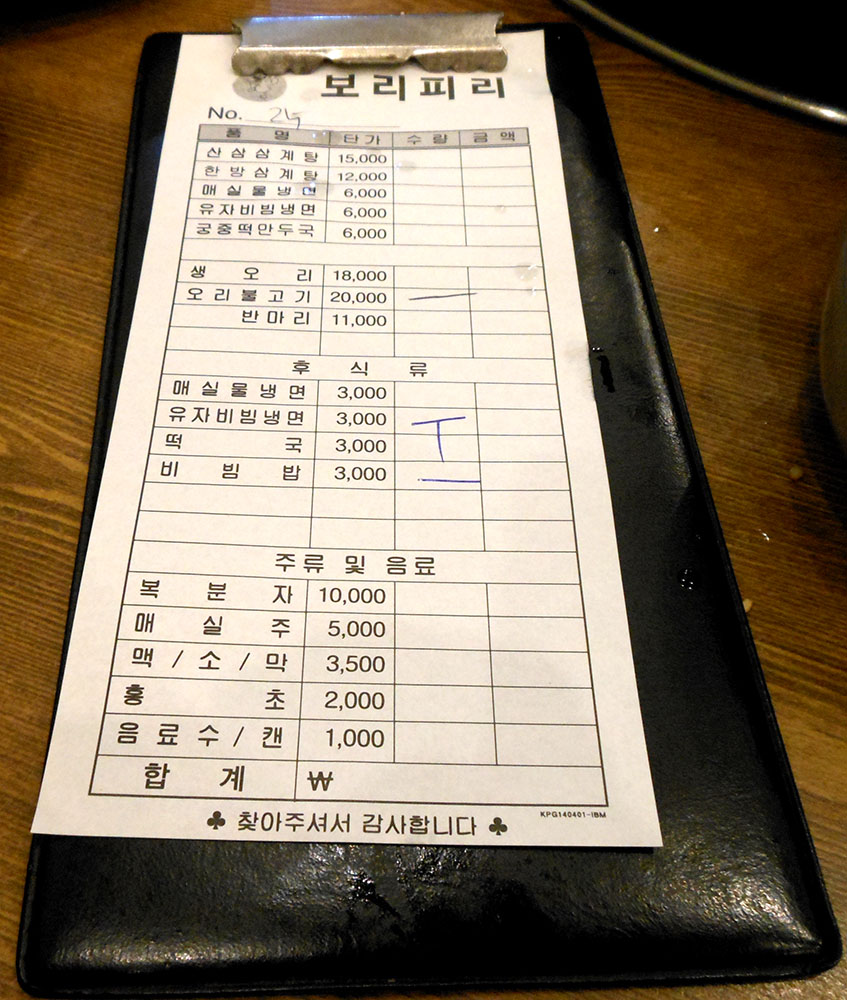 보리피리
No. 25
품 명 단가 수량 금액
산삼삼계탕 15,000
한방삼계탕 12,000
매실물냉면 6,000
유자비빔냉면 6,000
궁중떡만두국 6,000
생오리 18,000
오리불고기 20,000 一
반마리 11,000
후식류
매실물냉면 3,000
유자비빔냉면 3,000 丅
떡국 3,000
비빔밥 3,000 一
주류 및 음료
복분자 10,000
매실주 5,000
맥/소/막 3,500
홍초 2,000
음료수/캔 1,000
합계 ₩
♣ 찾아주셔서 감사합니다 ♣
KPG140401-IBM